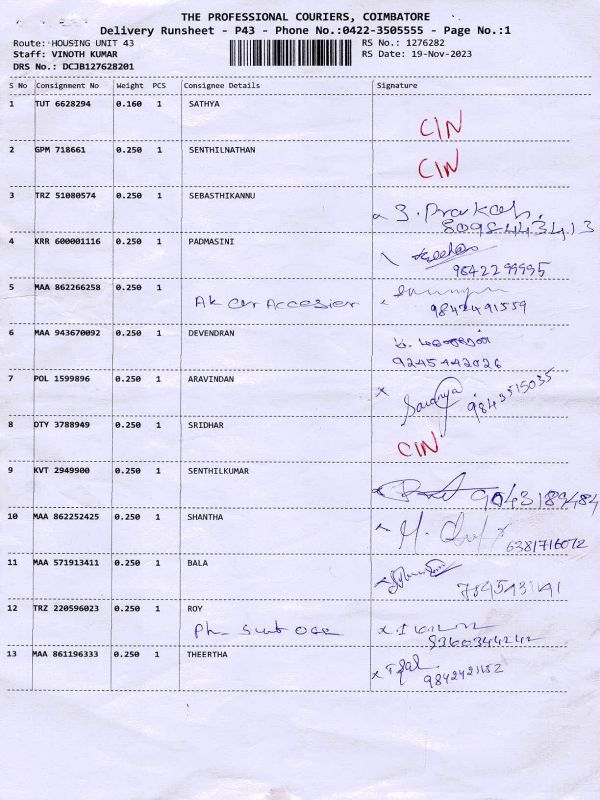 THE PROFESSIONAL COURIERS, COIMBATORE
Delivery Runsheet - P43 - Phone No.:0422-3505555 - Page No.:1
Route: HOUSING UNIT 43 RS No.: 1276282
Staff: VINOTH KUMAR RS Date: 19-Nov-2023
DRS No.: DCJB127628201
S No Consignment No Weight PCS Consignee Details Signature
1 TUT 6628294 0.160 1 SATHYA
CIN
2 GPM 718661 0.250 1 SENTHILNATHAN
CIN
3 TRZ 51080574 0.250 1 SEBASTHIKANNU
S. Prakash.
8098443413
4 KRR 600001116 0.250 1 PADMASINI
9842299995
5 MAA 862266258 0.250 1
Ak Car Accesier
9842491559
6 MAA 943670092 0.250 1 DEVENDRAN
9245442026
7 POL 1599896 0.250 1 ARAVINDAN
Saranya 9843515035
8 DTY 3788949 0.250 1 SRIDHAR
CIN
9 KVT 2949900 0.250 1 SENTHILKUMAR
9043189484
10 MAA 862252425 0.250 1 SHANTHA
6381716072
11 MAA 571913411 0.250 1 BALA
12 TRZ 220596023 0.250 1 ROY
Ph-
9360344242
13 MAA 861196333 0.250 1 THEERTHA
9842421152